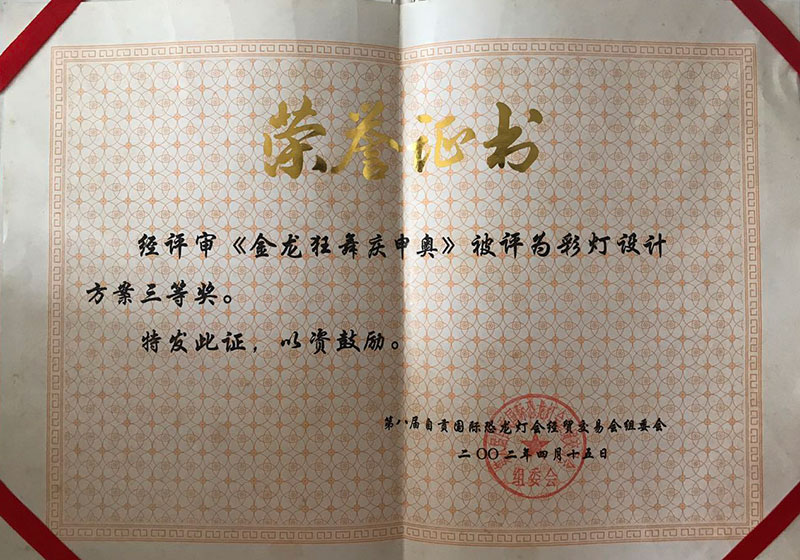 荣誉证书
经评审《金龙狂舞庆申奥》被评为彩灯设计
方案三等奖。
特发此证，以资鼓励。
第八届自贡国际恐龙灯会经贸交易会组委会
二〇〇二年四月十五日
组委会